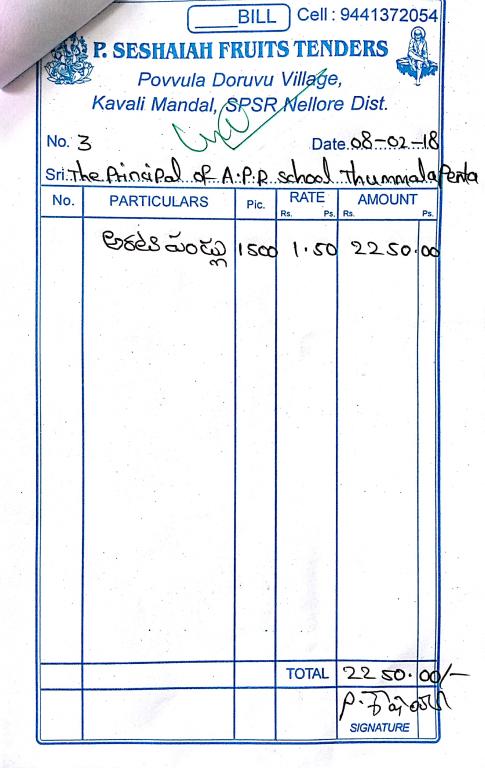 BILL Cell : 9441372054
P. SESHAIAH FRUITS TENDERS
Povvula Doruvu Village,
Kavali Mandal, SPSR Nellore Dist.
No. 3 Date. 08-02-18
Sri. The Principal of A.P.R school Thummalapenta
No. PARTICULARS Pic. RATE AMOUNT
Rs. Ps. Rs. Ps.
అరటి పండ్లు 1500 1.50 2250.00
TOTAL 2250.00/-
P. శేషయ్య
SIGNATURE